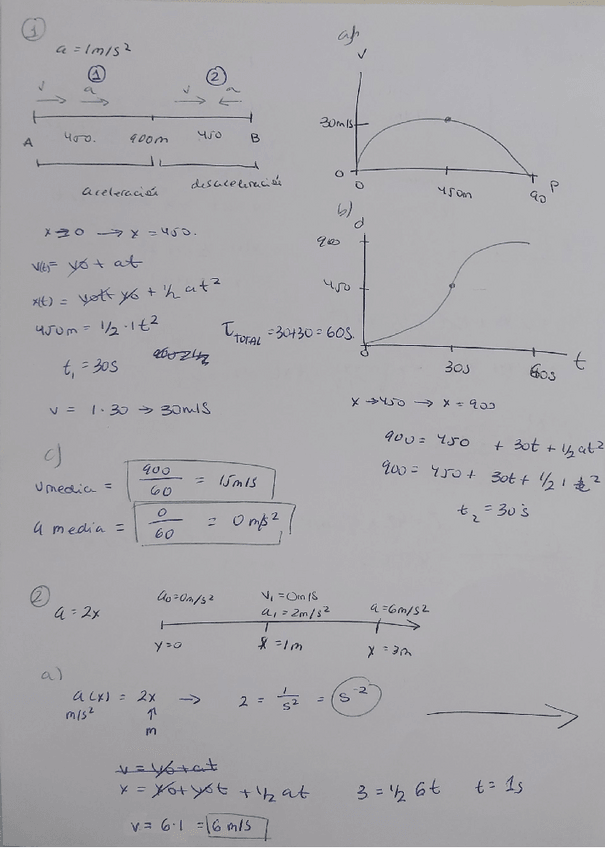 1
a = 1m/s²
1 2
v a v a
A 450. 900m 450 B
aceleración desaceleración
a)
v
30m/s
0
0 450m 90 P
x=0 → x = 450.
v(t)= v0 + at
x(t) = v0t x0 + 1/2 at²
450m = 1/2 · 1t²
t₁ = 30s
v = 1·30 → 30m/s
b)
d
900
450
0 30s 60s t
τTOTAL = 30+30 = 60s.
x→450 → x = 900
900 = 450 + 30t + 1/2at²
900 = 450 + 30t + 1/2 1 t²
t₂ = 30s
c)
vmedia = 900/60 = 15m/s
a media = 0/60 = 0 m/s²
2
a = 2x
a0=0m/s² v₁=0m/s a₁=2m/s² a=6m/s²
x=0 x=1m x=3m
a)
a(x) = 2x → 2 = 1/s² = s⁻²
m/s² m
v = v0+at
x = x0+v0t + 1/2 at 3 = 1/2 6t t = 1s
v = 6·1 = 6 m/s